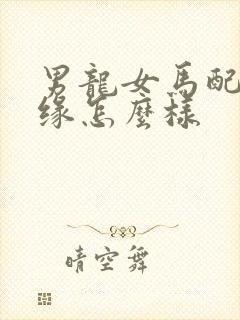 男龍女馬配
缘怎麼樣
晴空舞